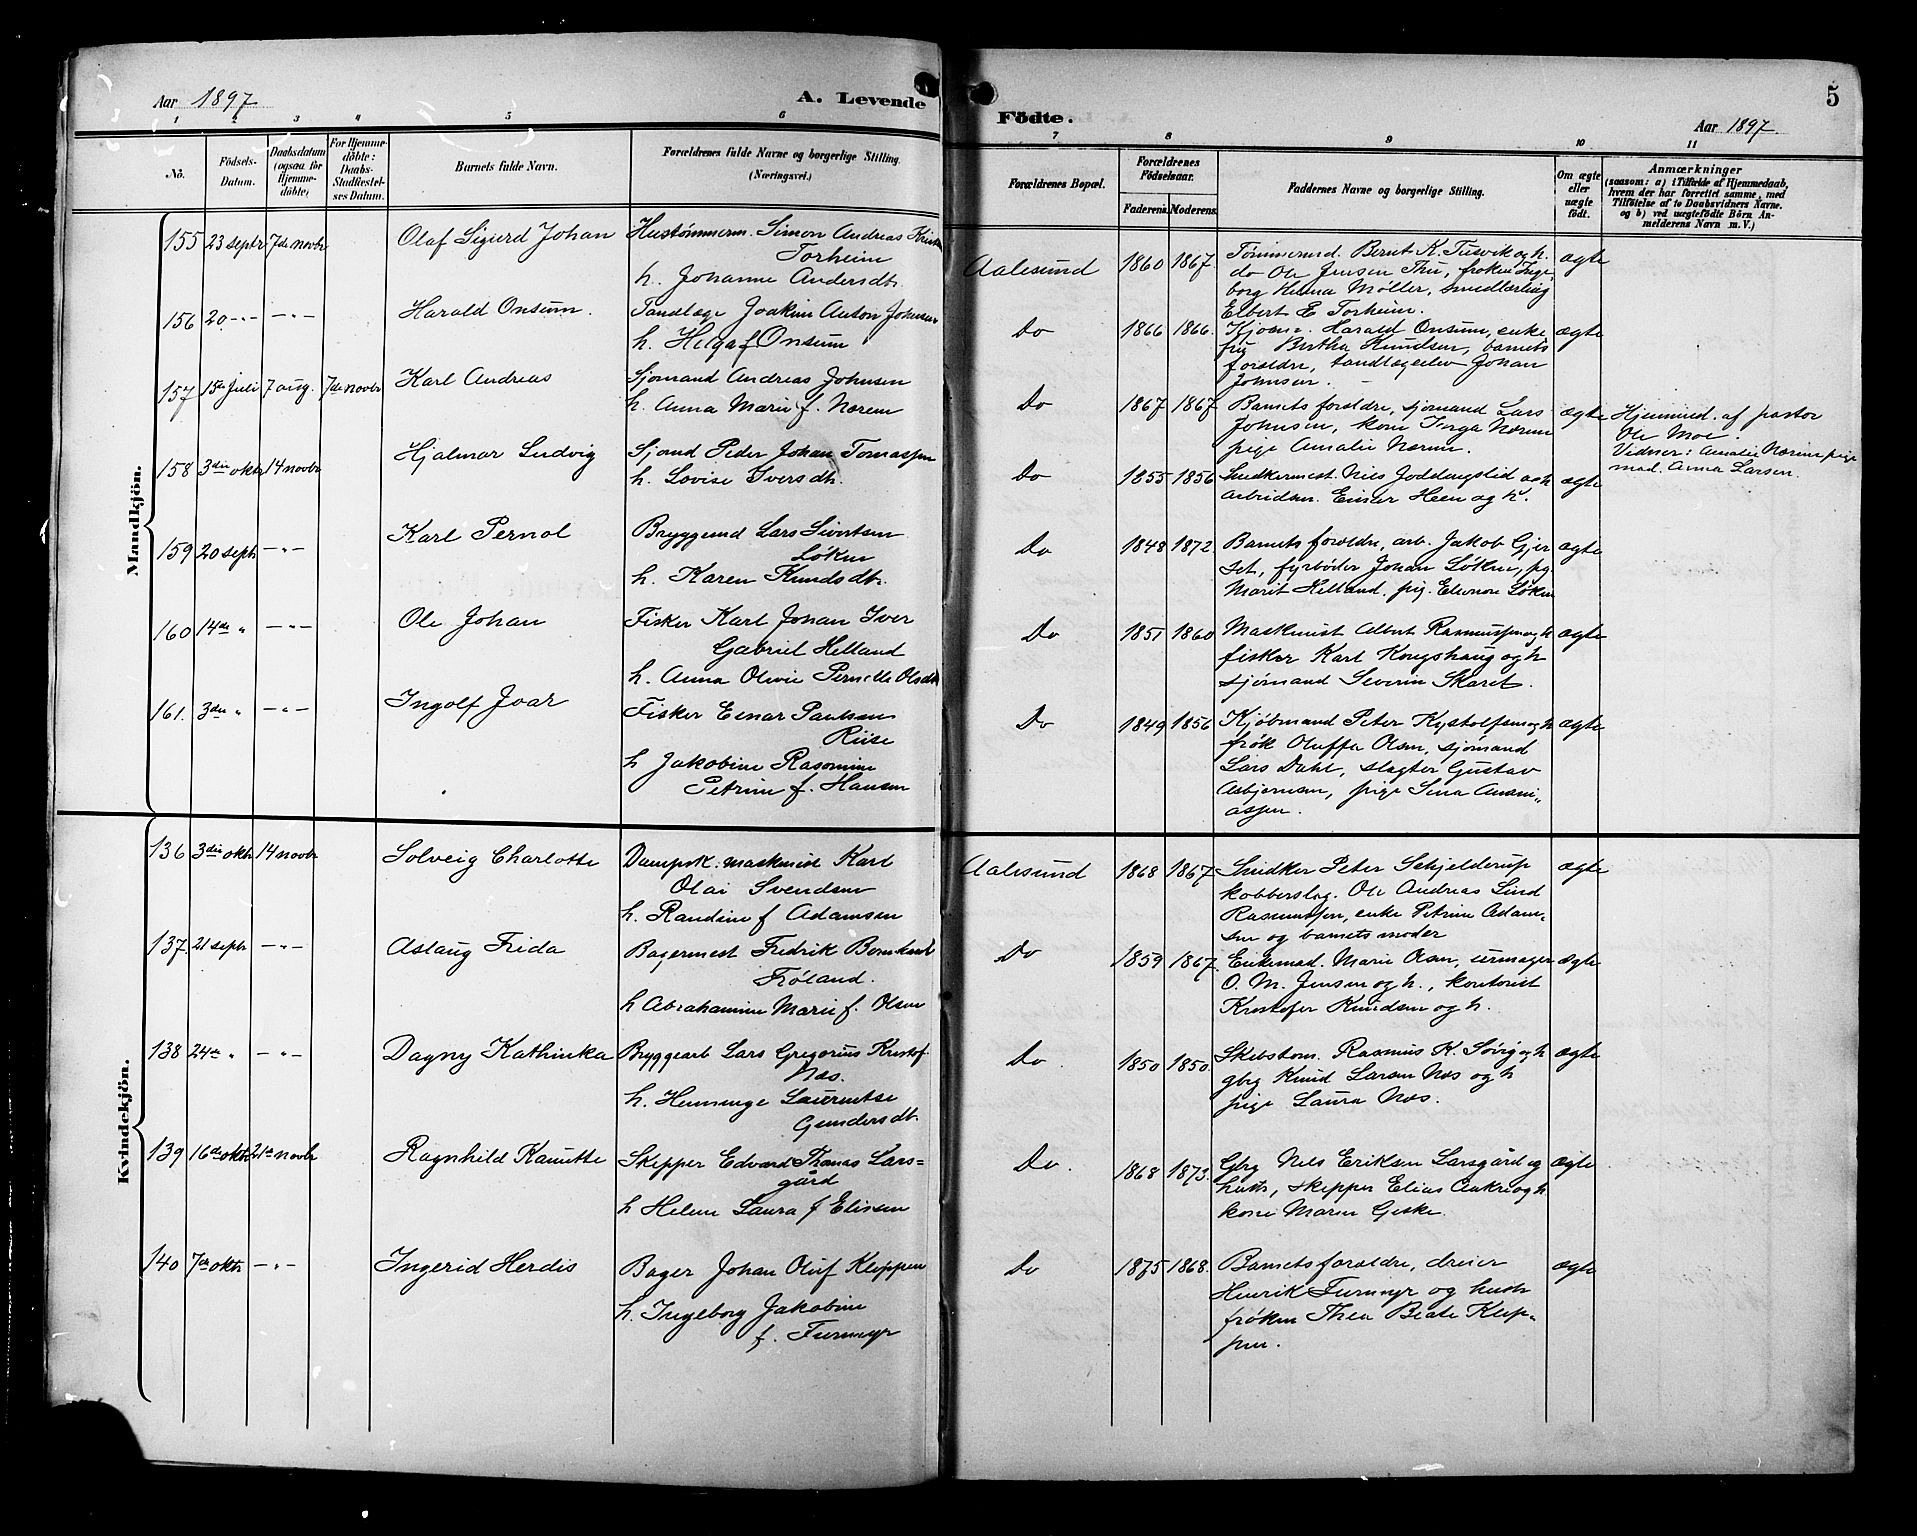 Aar 1897
A. Levende
1 2 3 4 5 6
No.
Födsels-Datum.
Daabsdatum (ogsaa for Hjemme-döbte)
For Hjemme-döbte: Daabs-Stadfæstel-ses Datum.
Barnets fulde Navn.
Forældrenes fulde Navne og borgerlige Stilling. (Næringsvei.)
Mandkjön.
155 23 septr 7de novbr Olaf Sigurd Johan Hustømmerm. Simon Andreas
Torheim
h. Johanne Andersdt.
156 20 -"- -"- Harald Onsum. Tandlæge Joakim Anton Johnsen
h. Helga f Onsum
157 15de Juli 7 aug. 7de novbr Karl Andreas Sjømand Andreas Johnsen
h. Anna Marie f. Nærem
158 3die oktr 14 novbr Hjalmar Ludvig Sjømd Peder Johan Tomassen
h. Lovise Iversdt.
159 20 septr -"- Karl Pernol Bryggemd Lars Sivertsen
Løken
h. Karen Knudsdt.
160 14de " -"- Ole Johan Fisker Karl Johan Iver
Gabriel Helland
h. Anna Olivie Pernille Olsdt
161. 3die " -"- Ingolf Joar Fisker Einar Paulsen
Riise
h Jakobine Rasmine
Petrine f. Hansen
Kvindekjön.
136 3die oktr 14 novbr Solveig Charlotte Dampsk. maskinist Karl
Olai Svendsen
h. Randine f Adamsen
137. 21 septr -"- Aslaug Frida Bagermest Fredrik
Frøland.
h Abrahamine Marie f. Olsen
138 24de " -"- Dagny Kathinka Bryggearb Lars Gregorius Kristof.
Næs.
h. Henninge Laurentse
Gundersdt.
139 16de oktr 21de novbr Ragnhild Kanutte Skipper Edvard Thomas Lars=
gård
h Helene Laura f Elisen
140 7de oktr -"- Ingerid Herdis Bager Johan Oluf Kleppen
h. Ingeborg Jakobine
f. Furmyr
5
Födte.
Aar 1897
7 8 9 10 11
Forældrenes Bopæl.
Forældrenes Födselsaar.
Faderens. Moderens.
Faddernes Navne og borgerlige Stilling.
Om ægte eller uægte födt.
Anmærkninger
(saasom: a) i Tilfælde af Hjemmedaab, hvem der har forrettet samme, med Tilföielse af to Daabsvidners Navne. og b) ved uægtefödte Börn An-melderens Navn m. V.)
Aalesund 1860 1867. Tømmermd. Bernt K. Tusvik og h. ægte
do Ole Jensen Thu, frøken Inge
borg Helena Møller, smedlærling
Elbert E Torheim.
Do 1866 1866. Kjøbm. Harald Onsum, enke ægte
frue Bertha Knudsen, barnets
foreldre, tandlægeelev Johan
Johnsen.
Do 1867 1867 Barnets foreldre, sjømand Lars ægte
Johnsen, kone Nærem
pige Amalie Nærem.
Hjemmed. af pastor
Ole Moe.
Vidner: Amalie Nærem pige
mad. Anna Larsen.
Do 1855 1856 Snedkermest. Nils Joddangslid og h ægte
arbeidsm. Einar Heen og h.
Do 1848 1872. Barnets foreldre, arb. Jakob Gjer ægte
set, fyrbøder Johan Løken, pg.
Marit Helland, pig. Elenore Løken
Do 1851 1860 Maskinist Albert Rasmussen og h ægte
fisker Karl Kongshaug og h
sjømand Severin Skaret.
Do 1849 1856 Kjøbmand Peter Kystolfsen og h ægte
frøk Oluffa Olsen, sjømand
Lars Dahl, slagter Gustav
Asbjørnsen, pige Sina Anani"
assen.
Aalesund 1868 1867 Snedker Peter Schjelderup ægte
kobberslag. Ole Andreas Lind
Rasmussen, enke Petrine Adam-
sen og barnets moder
Do 1859 1867. Enkemad. Marie Olsen, urmager ægte
O. M. Jensen og h., kontorist
Kristofer Knudsen og h.
Do 1850 1850. Skibstøm. Rasmus K. Søvig og h ægte
gbrg Knud Larsen Næs og h
pige Laura Næs.
Do. 1868 1873. Gbrg Nils Eriksen Larsgård og ægte
hustr, skipper Elias Aukre og h
kone Maren Giske.
Do 1875 1868. Barnets foreldre, dreier ægte
Henrik Furmyr og hustr
frøken Thea Beate Klep-
pen.